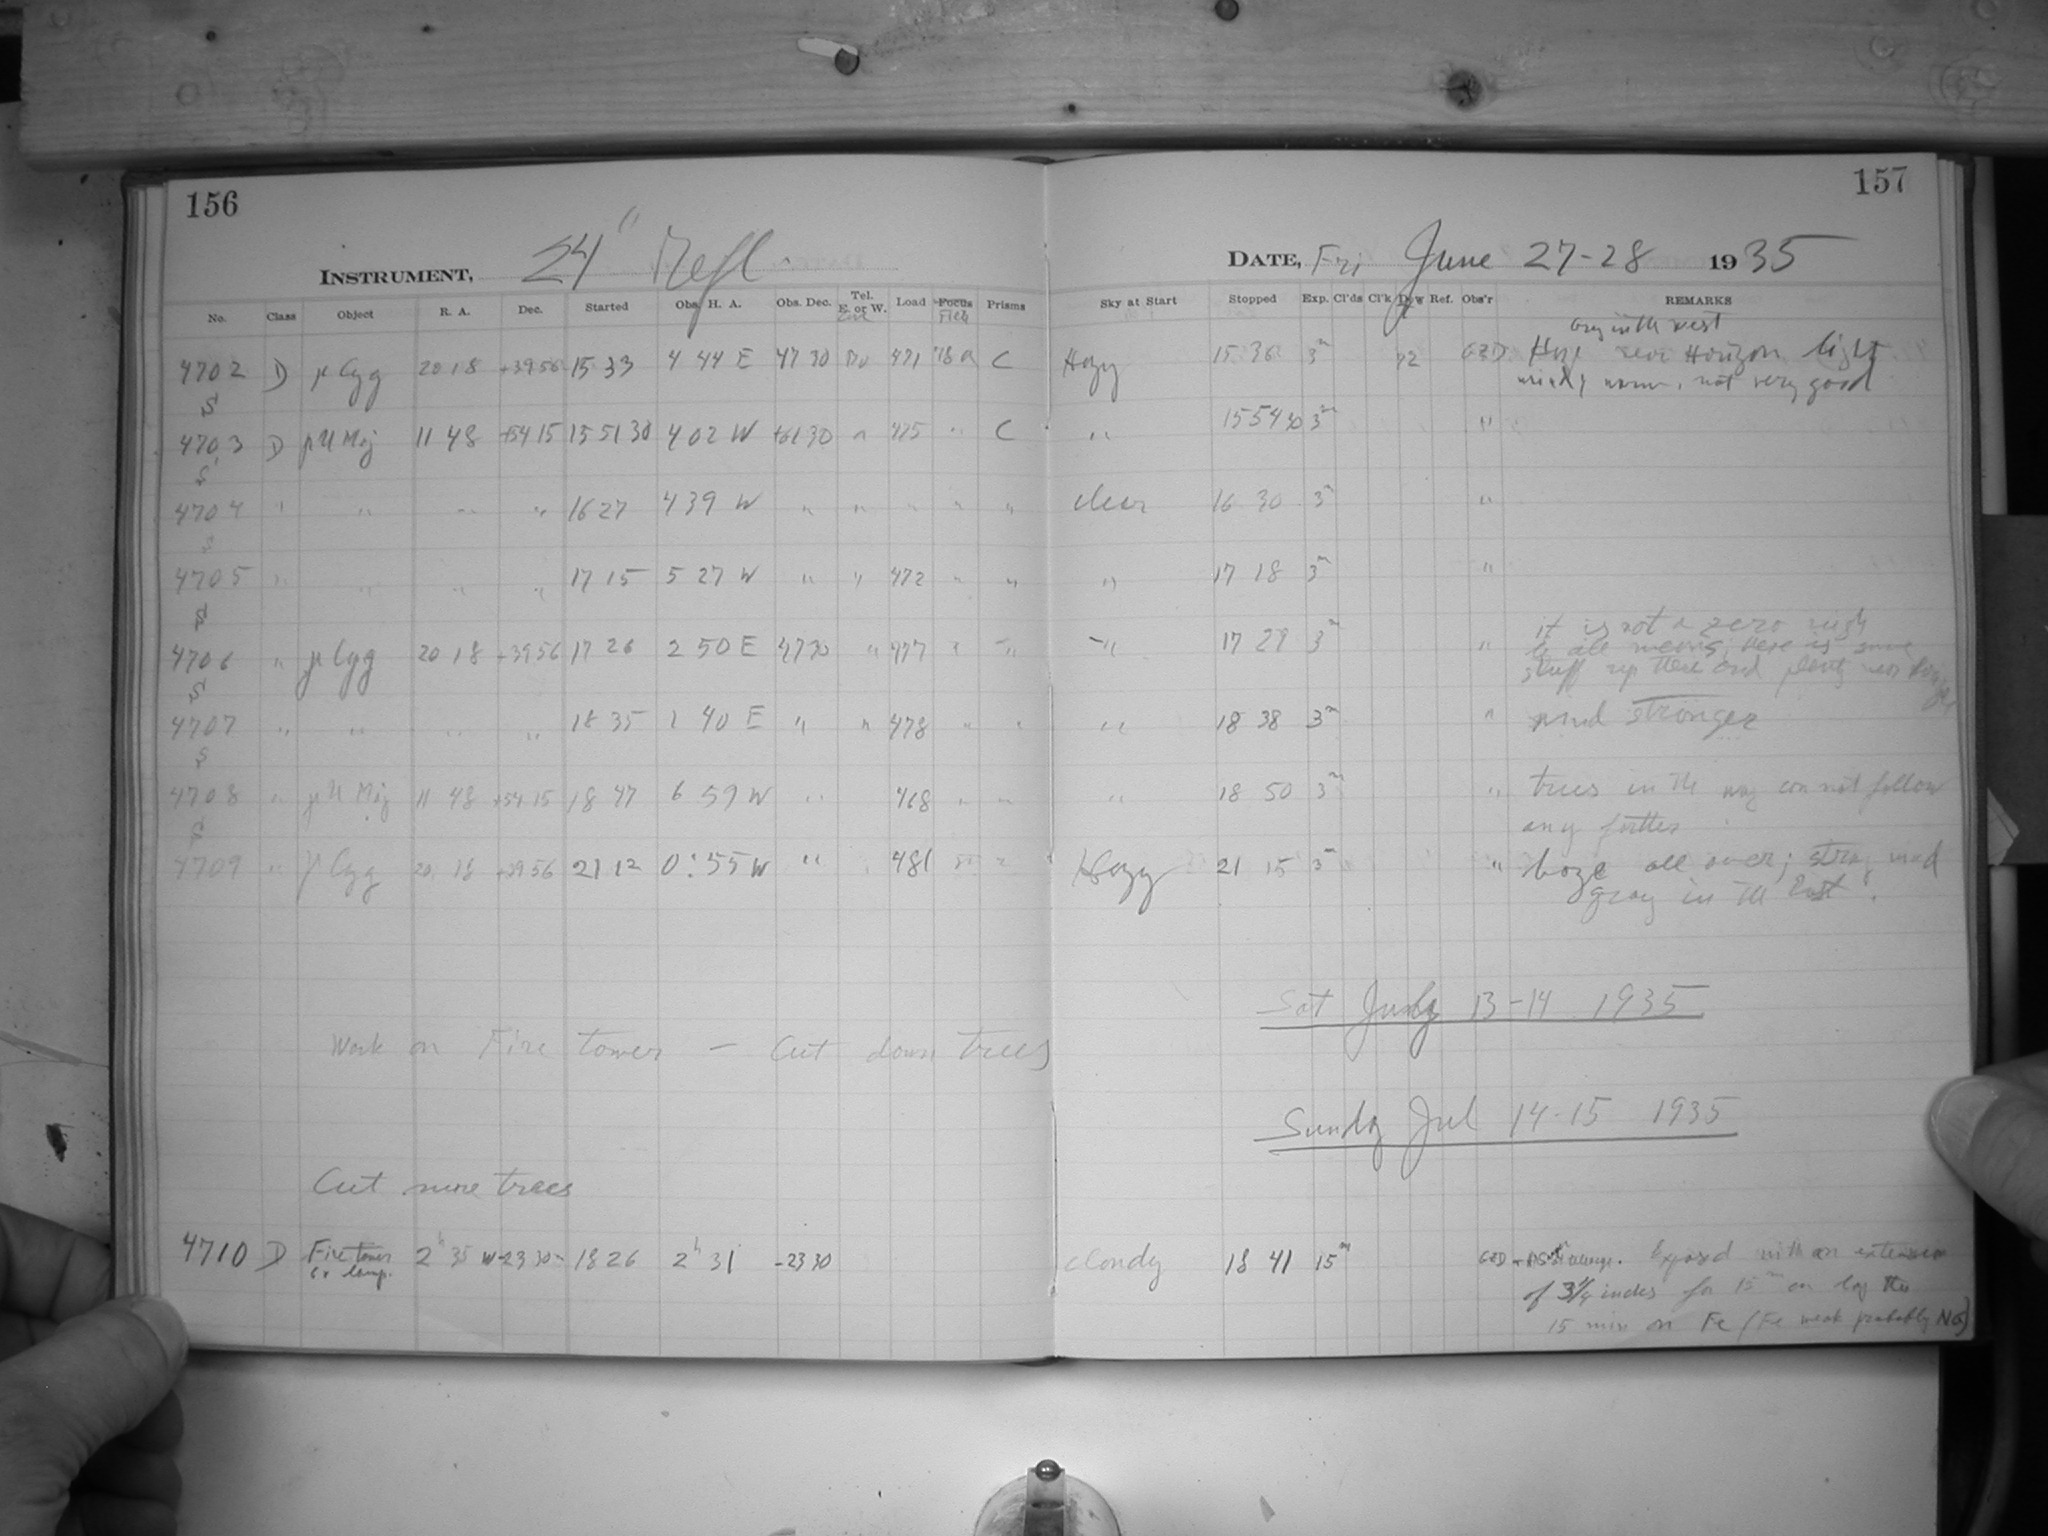 156
157
INSTRUMENT, 24" Refl.
DATE, Fri June 27-28 1935
No. Class Object R. A. Dec. Started Obs. H. A. Obs. Dec. Tel. E. or W. Load Focus Prisms
Sky at Start Stopped Exp. Cl'ds Cl'k Dew Ref. Obs'r REMARKS
4702 D γ Cyg 20 18 +39 56 15 33 4 44 E 47 30 471 C Hazy 15 36 3m 72 Haze near Horizon light
not very good
S
4703 D γ U Maj 11 48 +54 15 15 51 30 4 02 W +61 30 " 475 " C " 15 54 30 3m "
S
4704 " " " " 16 27 4 39 W " " " " " clear 16 30 3m "
S
4705 " " " " 17 15 5 27 W " " 472 " " " 17 18 3m "
S
it is not a zero
4706 " γ Cyg 20 18 +39 56 17 26 2 50 E 47 30 " 477 " " " 17 29 3m " by all means; there is some
stuff up there and plenty near
S
4707 " " " " 18 35 1 40 E " " 478 " " " 18 38 3m " wind stronger
S
4708 " γ U Maj 11 48 +54 15 18 47 6 59 W " 468 " " " 18 50 3m " trees in the way can not follow
any further
S
4709 " γ Cyg 20 18 +39 56 21 12 0:55 W " 481 Hazy 21 15 3m " haze all over; strong wind
gray in the East.
Sat July 13-14 1935
Work on Fire tower - Cut down trees
Sunday Jul 14-15 1935
Cut more trees
4710 D Fire tower 2h 35 W -23 30 18 26 2h 31 -23 30 Cloudy 18 41 15m Exposed with an extension
lamp.
of 3 1/4 inches for 15m on
15 min on Fe (Fe weak probably NG)